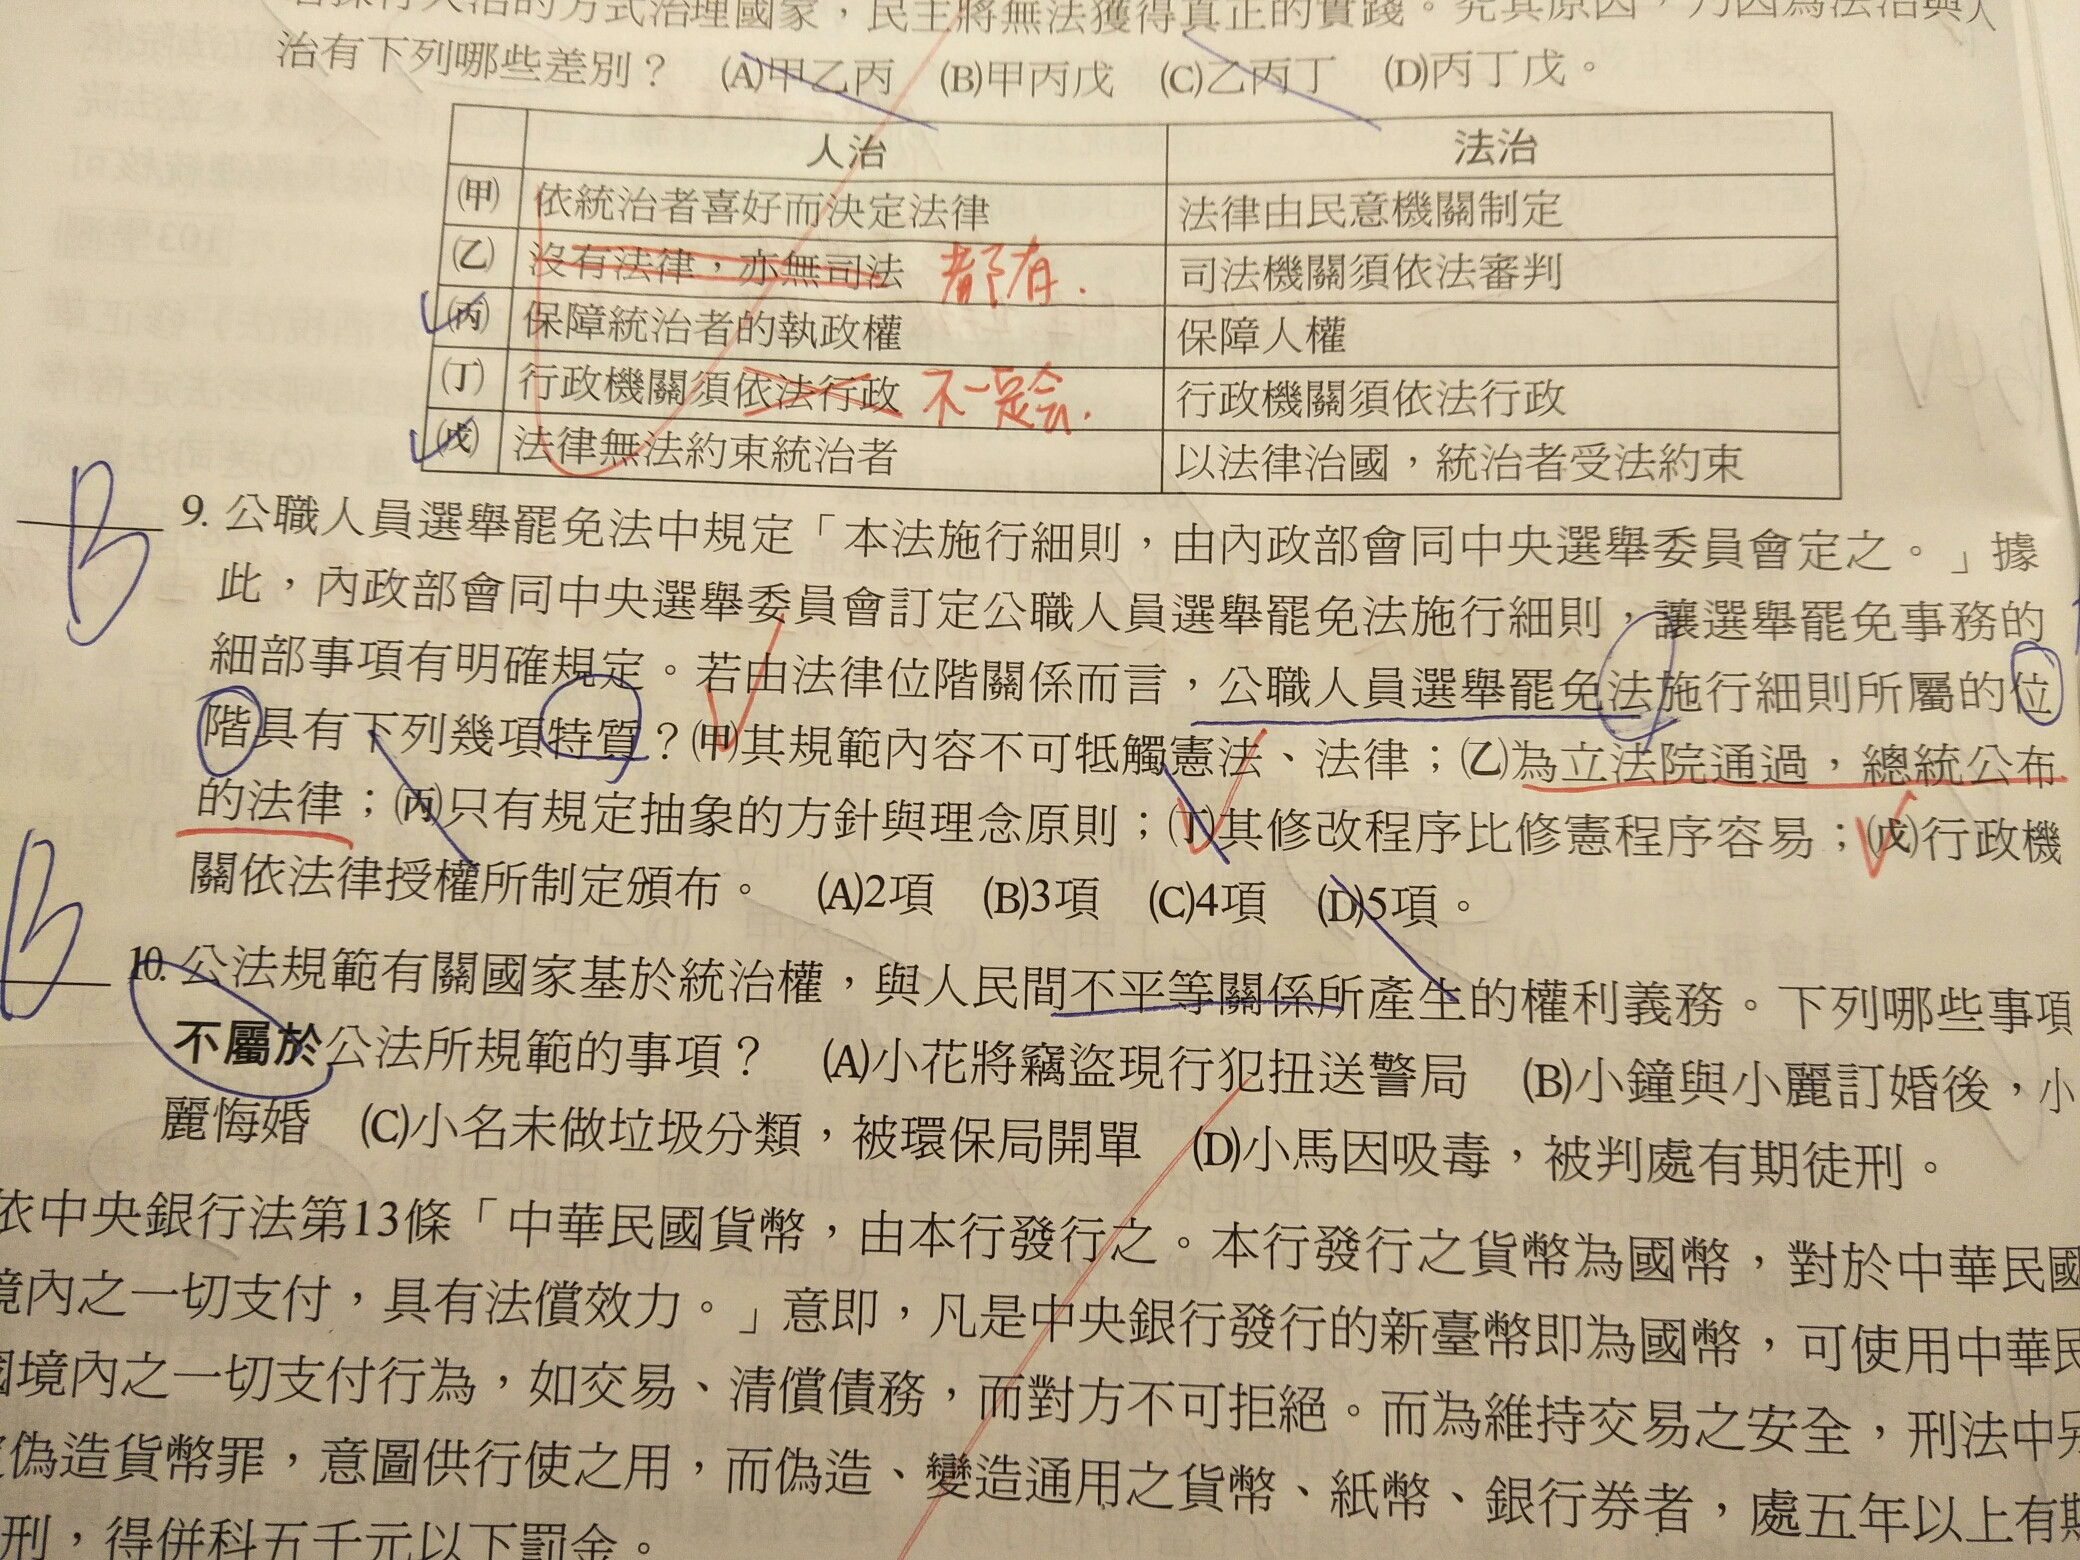 者採行人治的方式治理國家，民主將無法獲得真正的實踐。究其原因，乃因為法治與人
治有下列哪些差別？ (A)甲乙丙 (B)甲丙戊 (C)乙丙丁 (D)丙丁戊。
人治 法治
(甲) 依統治者喜好而決定法律 法律由民意機關制定
(乙) 沒有法律，亦無司法 都有. 司法機關須依法審判
(丙) 保障統治者的執政權 保障人權
(丁) 行政機關須依法行政 不一定會. 行政機關須依法行政
(戊) 法律無法約束統治者 以法律治國，統治者受法約束
B 9. 公職人員選舉罷免法中規定「本法施行細則，由內政部會同中央選舉委員會定之。」據
此，內政部會同中央選舉委員會訂定公職人員選舉罷免法施行細則，讓選舉罷免事務的
細部事項有明確規定。若由法律位階關係而言，公職人員選舉罷免法施行細則所屬的位
階具有下列幾項特質？(甲)其規範內容不可牴觸憲法、法律；(乙)為立法院通過，總統公布
的法律；(丙)只有規定抽象的方針與理念原則；(丁)其修改程序比修憲程序容易；(戊)行政機
關依法律授權所制定頒布。 (A)2項 (B)3項 (C)4項 (D)5項。
B 10. 公法規範有關國家基於統治權，與人民間不平等關係所產生的權利義務。下列哪些事項
不屬於公法所規範的事項？ (A)小花將竊盜現行犯扭送警局 (B)小鐘與小麗訂婚後，小
麗悔婚 (C)小名未做垃圾分類，被環保局開單 (D)小馬因吸毒，被判處有期徒刑。
依中央銀行法第13條「中華民國貨幣，由本行發行之。本行發行之貨幣為國幣，對於中華民國
境內之一切支付，具有法償效力。」意即，凡是中央銀行發行的新臺幣即為國幣，可使用中華民
國境內之一切支付行為，如交易、清償債務，而對方不可拒絕。而為維持交易之安全，刑法中另
偽造貨幣罪，意圖供行使之用，而偽造、變造通用之貨幣、紙幣、銀行券者，處五年以上有期
刑，得併科五千元以下罰金。